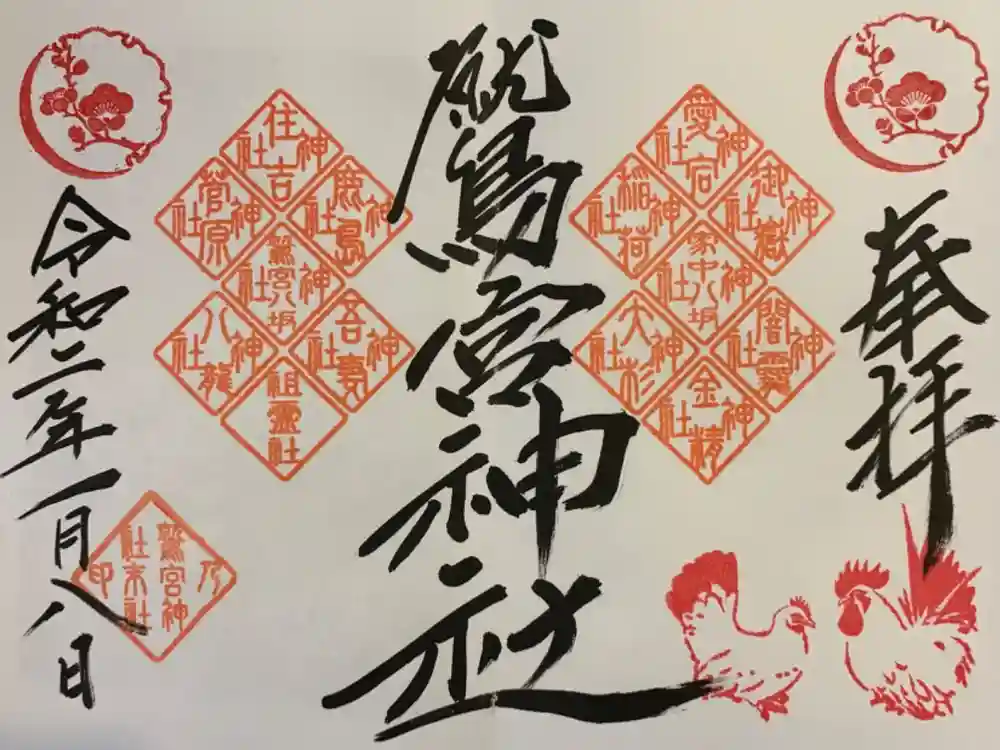 奉拝
愛宕神社
御嶽神社
稲荷神社
家中八坂神社
闇龗神社
大杉神社
金精神社
鷲宮神社
住吉神社
鹿島神社
菅原神社
鷲宮八坂神社
吾妻神社
八龍神社
祖霊社
令和二年一月八日
鷲宮神社末社乃印